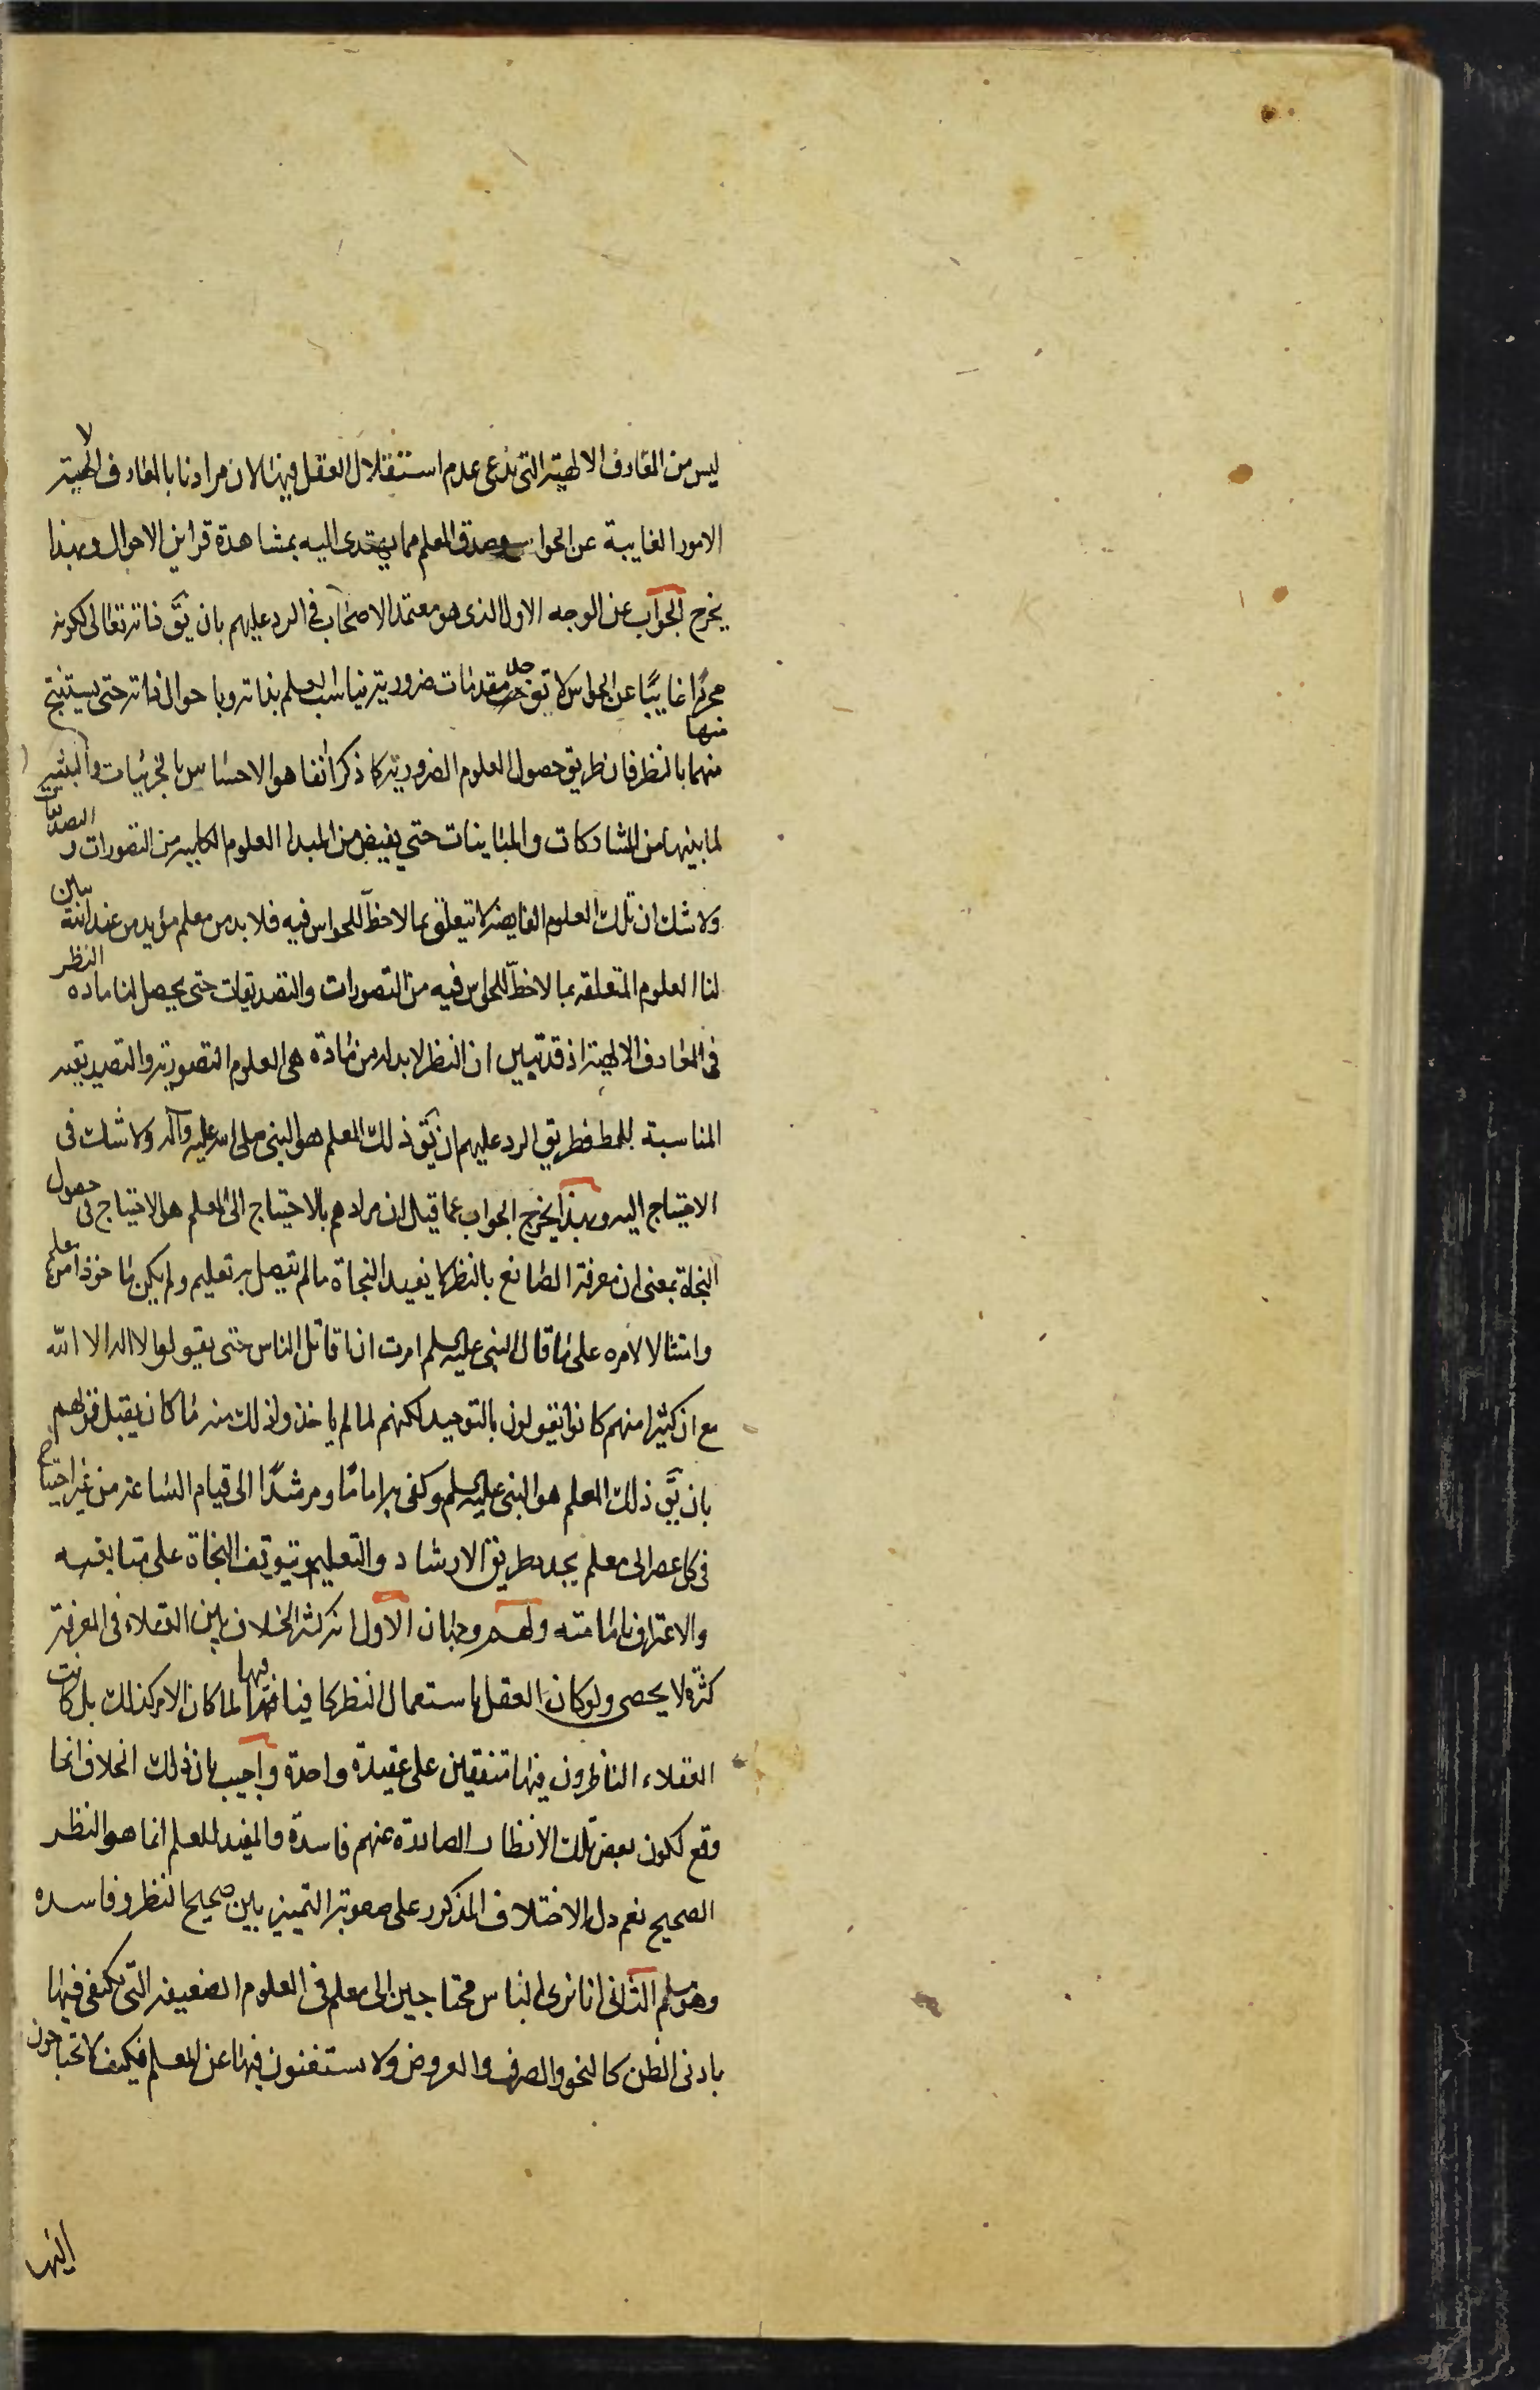 ليس من المعارف الالهية التى ندعى عدم استقلال العقل فيها لان مرادنا بالمعارف الالهية
الامور الغايبة عن الحواس وصدق المعلم مما يهتدى اليه بمشاهدة قراين الاحوال وبهذا
يخرج الجواب عن الوجه الاول الذى هو معتمد الاصحاب فى الرد عليهم بان يق ذاته تعالى لكونه
مجردا غايبًا عن الحواس لا يق حصل مقدمات ضرورية يناسب العلم بذاته وباحوال ذاته حتى يستنتج
منها
منهما بالنظر فان طريق حصول العلوم الضرورية كما ذكر آنفا هو الاحساس بالجزئيات والتنبه
لما بينها من المشاركات والمباينات حتى يفيض من المبدا العلوم الكلية من التصورات و التصديقات
ولا شك ان تلك العلوم الفايضة لا تتعلق بما لا حظّ للحواس فيه فلا بد من معلم مؤيد من عند الله يبين
لنا العلوم المتعلقة بما لا حظّ للحواس فيه من التصورات والتصديقات حتى يحصل لنا ماده النظر
فى المعارف الالهية اذ قد تبين ان النظر لا بد له من مادة هى العلوم التصورية والتصديقية
المناسبة للمط فطريق الرد عليهم ان يق ذلك المعلم هو النبى صلى الله عليه وآله ولا شك فى
الاحتياج اليه وبهذا يخرج الجواب عما قيل ان مرادهم بالاحتياج الى المعلم هو الاحتياج فى حصول
النجاة بمعنى ان معرفة الصانع بالنظر لا يفيد النجاة ما لم يتصل به تعليم ولم يكن ماخوذا من معلم
وامتثالا لامره على ما قال النبى عليه السلم امرت ان اقاتل الناس حتى يقولوا لا اله الا الله
مع ان كثيرا منهم كانوا يقولون بالتوحيد لكنهم لما لم ياخذوا ذلك منه ما كان يقبل قولهم
بان يق ذلك المعلم هو النبى عليه السلم وكفى به اماما ومرشدًا الى قيام الساعة من غير احتياج
فى كل عصر الى معلم يجدد طريق الارشاد والتعليم ويتوقف النجاة على متابعته
والاعتراف بامامته ولهم وجهان الاول انه كثر الخلاف بين العقلاء فى المعرفة
كثرة لا يحصى ولو كان العقل باستعمال النظر كافيا فيها لما كان الامر كذلك بل كانت
العقلاء الناظرون فيها متفقين على عقيدة واحدة واجيب بان ذلك الخلاف انما
وقع لكون بعض تلك الانظار الصادرة عنهم فاسدة والمفيد للعلم انما هو النظر
الصحيح نعم دل الاختلاف المذكور على صعوبة التميز بين صحيح النظر وفاسده
وهو مسلم الثانى انا نرى الناس محتاجين الى معلم فى العلوم الضعيفة التى يكتفى فيها
بادنى الظن كالنحو والصرف والعروض ولا يستغنون فيها عن المعلم فكيف لا يحتاجون
اليها